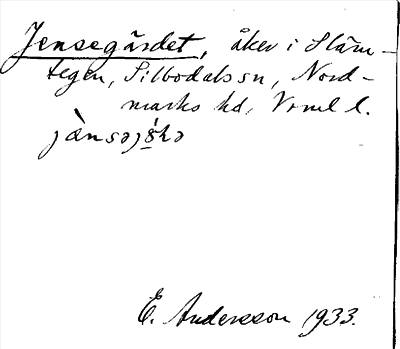 Jensegärdet, åker i Släm-
tegen, Silbodals sn, Nord-
marks hd, Vrml l.
E. Andersson 1933.